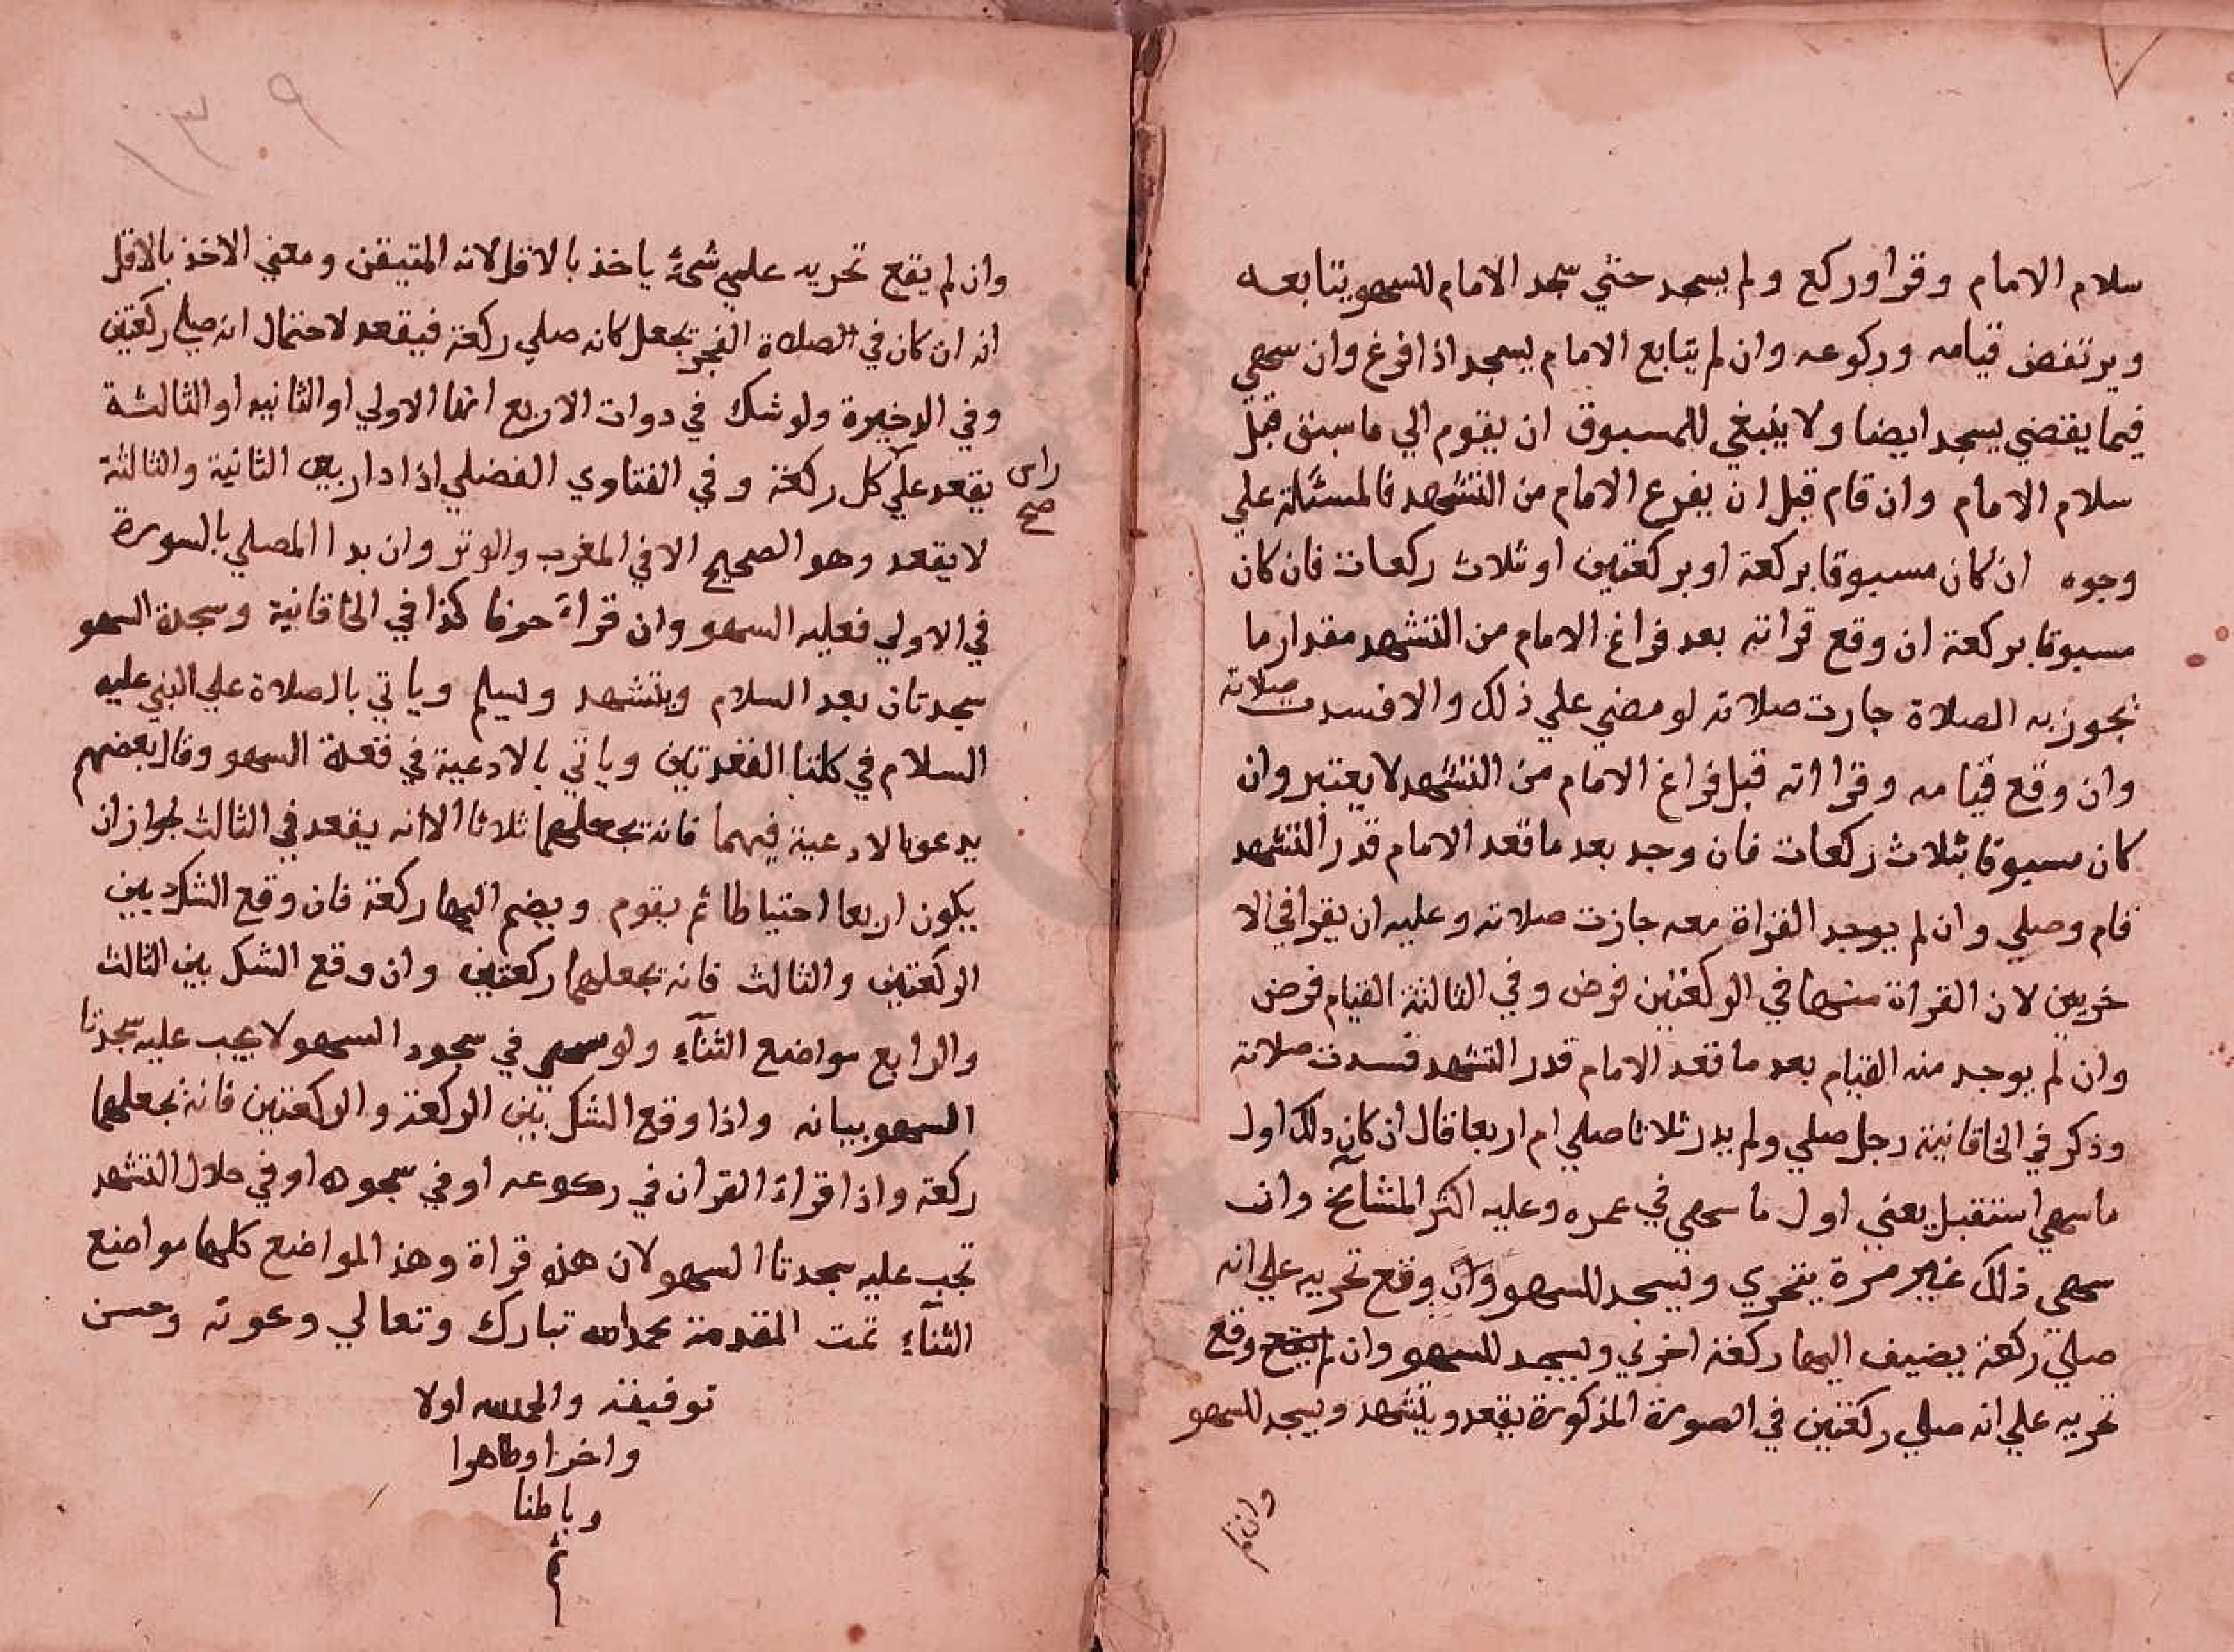 سلام الامام وقرا وركع ولم يسجد حتي سجد الامام للسهو يتابعه
ويرتفض قيامه وركوعه وان لم يتابع الامام يسجد اذا فرغ وان سهي
فيما يقضي يسجد ايضا ولا ينبغي للمسبوق ان يقوم الي ما سبق قبل
سلام الامام وان قام قبل ان يفرع الامام من التشهد فالمسئلة علي
وجوه ان كان مسبوقا بركعة او بركعتين او ثلاث ركعات فان كان
مسبوقا بركعة ان وقع قراته بعد فراغ الامام من التشهد مقدار ما
تجوز به الصلاة جازت صلاته لو مضي علي ذلك والا فسدت صلاته
وان وقع قيامه وقرااته قبل فراغ الامام من التشهد لا يعتبر وان
كان مسبوقا بثلاث ركعات فان وجد بعد ما قعد الامام قدر التشهد
قام وصلي وان لم يوجد القراة معه جازت صلاته وعليه ان يقرا في الا
خريين لان القراة منها في الركعتين فرض وفي الثالثة القيام فرض
وان لم يوجد منه القيام بعد ما قعد الامام قدر التشهد فسدت صلاته
وذكر في الخاقانية رجل صلي ولم يدر ثلاثا صلي ام اربعا قال ان كان ذلك اول
ما سهي استقبل يعني اول ما سهي في عمره وعليه اكثر المشآيخ وان
سهي ذلك غير مرة يتحري ويسجد للسهو وان وقع تحريه علي انه
صلي ركعة يضيف اليها ركعة اخري ويسجد للسهو وان وقع
تحريه علي انه صلي ركعتين في الصورة المذكورة يقعد ويتشهد ويسجد للسهو
وان لم
٩ ٣١
وان لم يقع تحريه علي شئ ياخذ بالاقل لانه المتيقن ومعني الاخذ بالاقل
انه ان كان في الصلاة الفجر تجعل كانه صلي ركعة فيقعد لاحتمال انه صلي ركعتين
وفي الدخيرة ولو شك في دوات الاربع انها الاولي او الثانيه او الثالثة
يقعد علي كل ركعة وفي الفتاوي الفضلي اذا دار بين الثانية والثالثة
راس
صح
لا يقعد وهو الصحيح الا في المغرب والوتر وان بدا المصلي بالسورة
في الاولي فعليه السهو وان قراء حرفا كذا في الخاقانية وسجدة السهو
سجدتان بعد السلام ويتشهد ويسلم وياتي بالصلاة علي النبي عليه
السلام في كلتا القعدتين وياتي بالادعية في قعدة السهو وقال بعضهم
يدعو بالادعية فيهما فانه تجعلهما ثلاثا الا انه يقعد في الثالث لجواز ان
يكون اربعا احتياطا ثم يقوم ويضم اليها ركعة فان وقع الشك بين
الركعتين والثالث فانه تجعلهما ركعتين وان وقع الشك بين الثالث
والرابع مواضع الثنآء ولو سهي في سجود السهو لا يجب عليه سجدتا
السهو بيانه واذا وقع الشك بين الركعة والركعتين فانه تجعلهما
ركعة واذا قراء القران في ركوعه او في سجوده او في خلال التشهد
تجب عليه سجدتا السهو لان هذه قراة وهذ المواضع كلها مواضع
الثنآء تمت المقدمة بحمد الله تبارك وتعالي وعونه وحسن
توفيقه والحمد لله اولا
واخرا وظاهرا
وباطنا